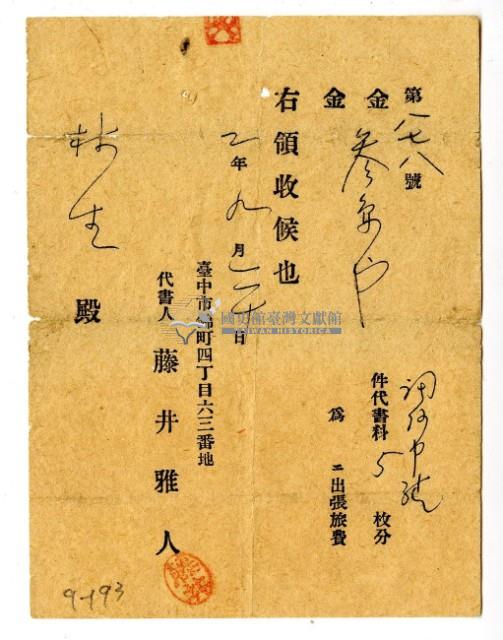 第八七八號
金叁
件代書料5枚分
金
為ニ出張旅費
右領收候也
年九月 日
臺中市錦町四丁目六三番地
代書人 藤井雅人
林生殿
國史館臺灣文獻館
TAIWAN HISTORICA
9-193